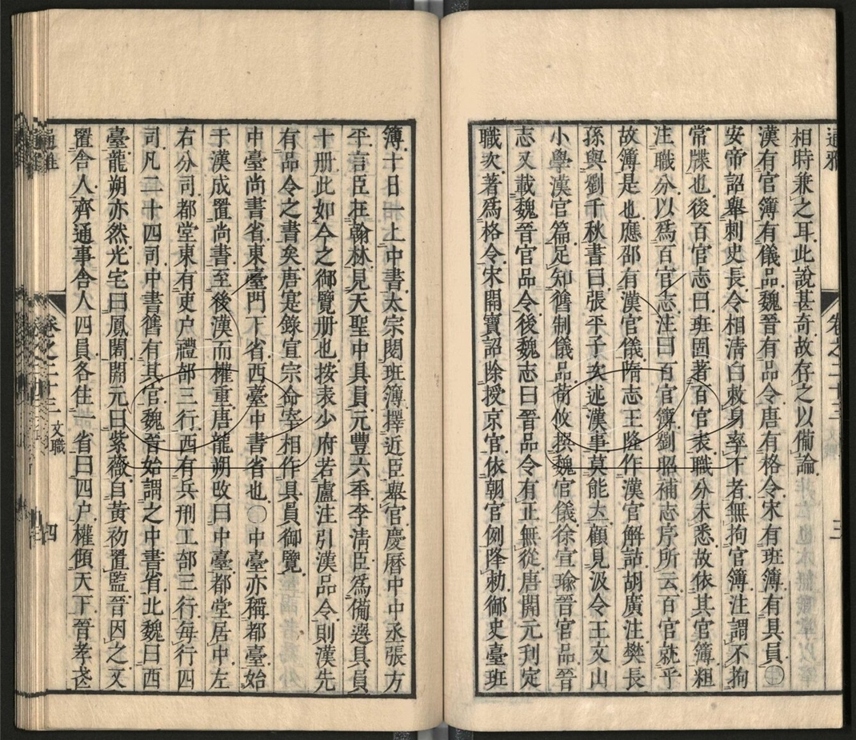 通雅
卷之二十三
三
相時兼之耳此說甚奇故存之以備論
漢有官簿有儀品魏晉有品令唐有格令宋有班簿有具員
安帝詔舉刺史長令相清白救身率下者無拘官簿注謂不拘
常牒也後百官志曰班固著百官表職分未悉故依其官簿粗
注職分以爲百官志注曰百官簿劉昭補志序所云百官就乎
故簿是也應邵有漢官儀隋志王隆作漢官解詁胡廣注樊長
孫與劉千秋書曰張平子欲述漢事莫能大顧見汲令王文山
小學漢官篇足知舊制儀品荀攸撰魏官儀徐宣瑜晉官品晉
志又載魏晉官品令後魏志曰晉品令有正無從唐開元刊定
職次著爲格令宋開寶詔除授京官依朝官例降勅御史臺班
簿十日一上中書太宗閱班簿擇近臣舉官慶曆中中丞張方
平言臣在翰林見天聖中具員元豐六年李清臣爲備邊具員
十册此如今之御覽册也按表少府若盧注引漢品令則漢先
有品令之書矣唐寔錄宣宗命宰相作具員御覽
中臺尚書省東臺門下省西臺中書省也〇中臺亦稱都臺始
于漢成置尚書至後漢而權重唐龍朔改曰中臺都堂居中左
右分司都堂東有吏户禮部三行西有兵刑工部三行每行四
司凡二十四司中書舊有其官魏晉始謂之中書省北魏曰西
臺龍朔亦然光宅曰鳳閣開元曰紫薇自黃初置監晉因之又
置舍人齊通事舍人四員各住 省曰四户權傾天下晉孝武
通雅
卷之二十三
文職
四